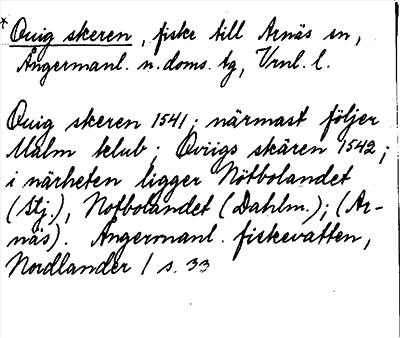 * Ouig skeren, fiske till Arnäs sn,
Ångermanl. n. doms. tg, Vrnl. l.
Ouig skeren 1541; närmast följer
Malm klub; Oviigs skären 1542;
i närheten ligger Nötbolandet
(Stj.), Notbolandet (Dahlm.); (Ar-
näs). Ångermanl. fiskevatten,
Nordlander / s. 33